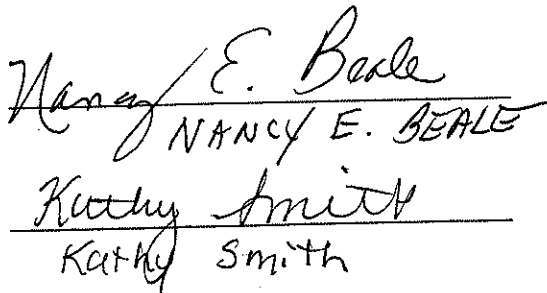 Nancy E. Beale
NANCY E. BEALE
Kathy Smith
Kathy Smith